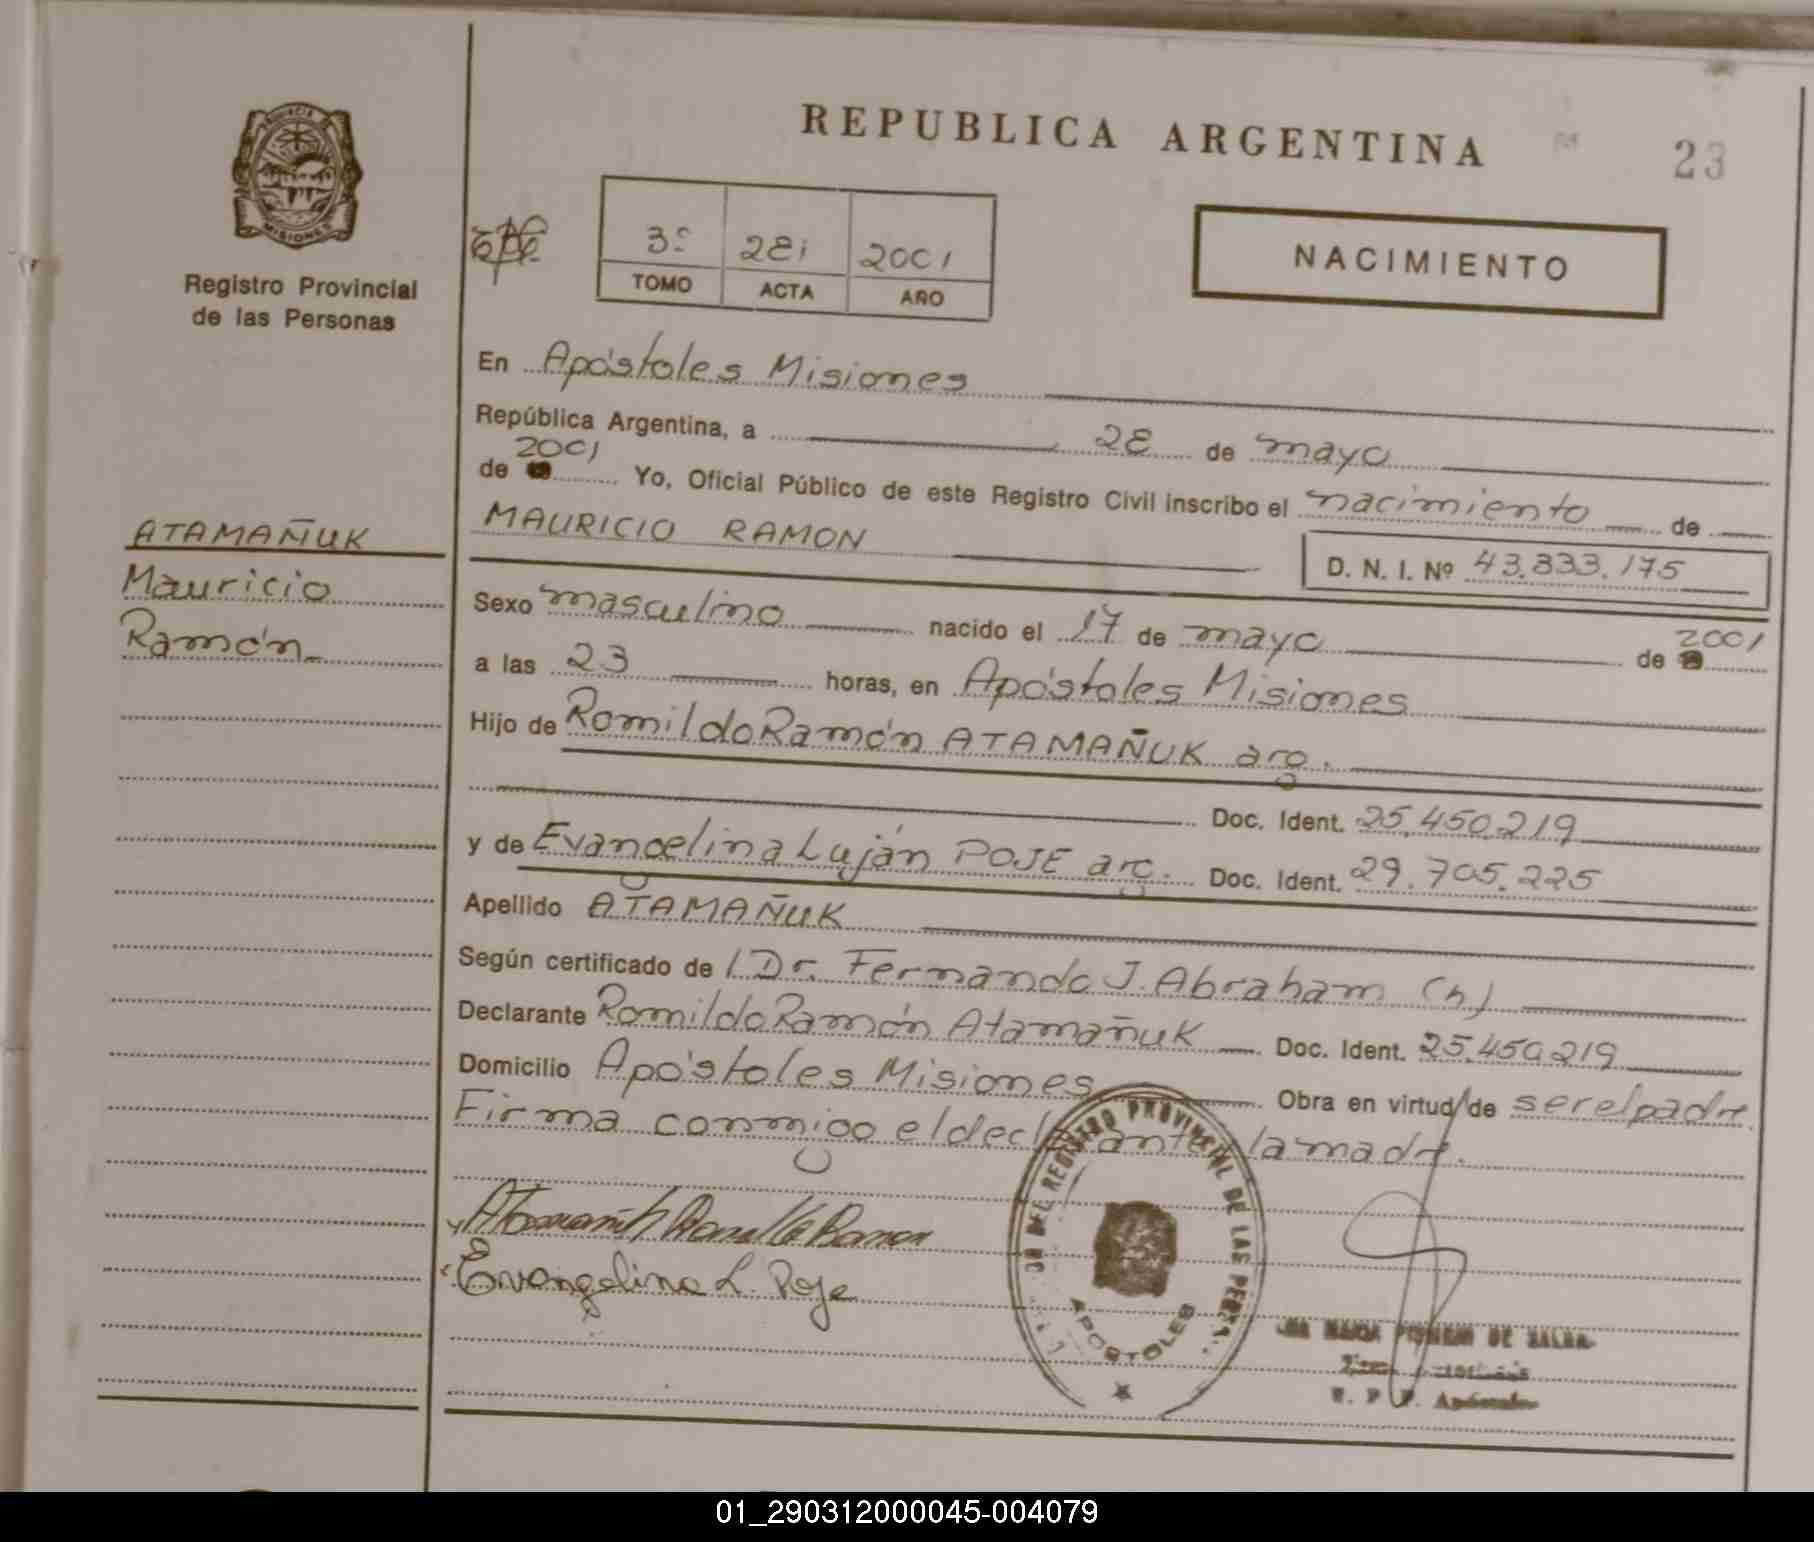 REPUBLICA ARGENTINA
23
PROVINCIA DE
MISIONES
Registro Provincial
de las Personas
3º 281 2001
TOMO ACTA AÑO
NACIMIENTO
En Apóstoles Misiones
República Argentina, a 28 de mayo
de 2001 Yo, Oficial Público de este Registro Civil inscribo el nacimiento de
MAURICIO RAMON
D. N. I. Nº 43.333.175
ATAMAÑUK
Mauricio
Ramón
Sexo masculino nacido el 17 de mayo de 2001
a las 23 horas, en Apóstoles Misiones
Hijo de Romildo Ramón ATAMAÑUK arg.
Doc. Ident. 25.450.219
y de Evangelina Luján POJE arg. Doc. Ident. 29.705.225
Apellido ATAMAÑUK
Según certificado de / Dr. Fernando J. Abraham (h)
Declarante Romildo Ramón Atamañuk Doc. Ident. 25.450.219
Domicilio Apóstoles Misiones Obra en virtud de ser el padre.
Firma conmigo el declarante la madre.
Evangelina L. Poje
DEL REGISTRO PROVINCIAL DE LAS PERS.
APOSTOLES
MARIA DE
01_290312000045-004079